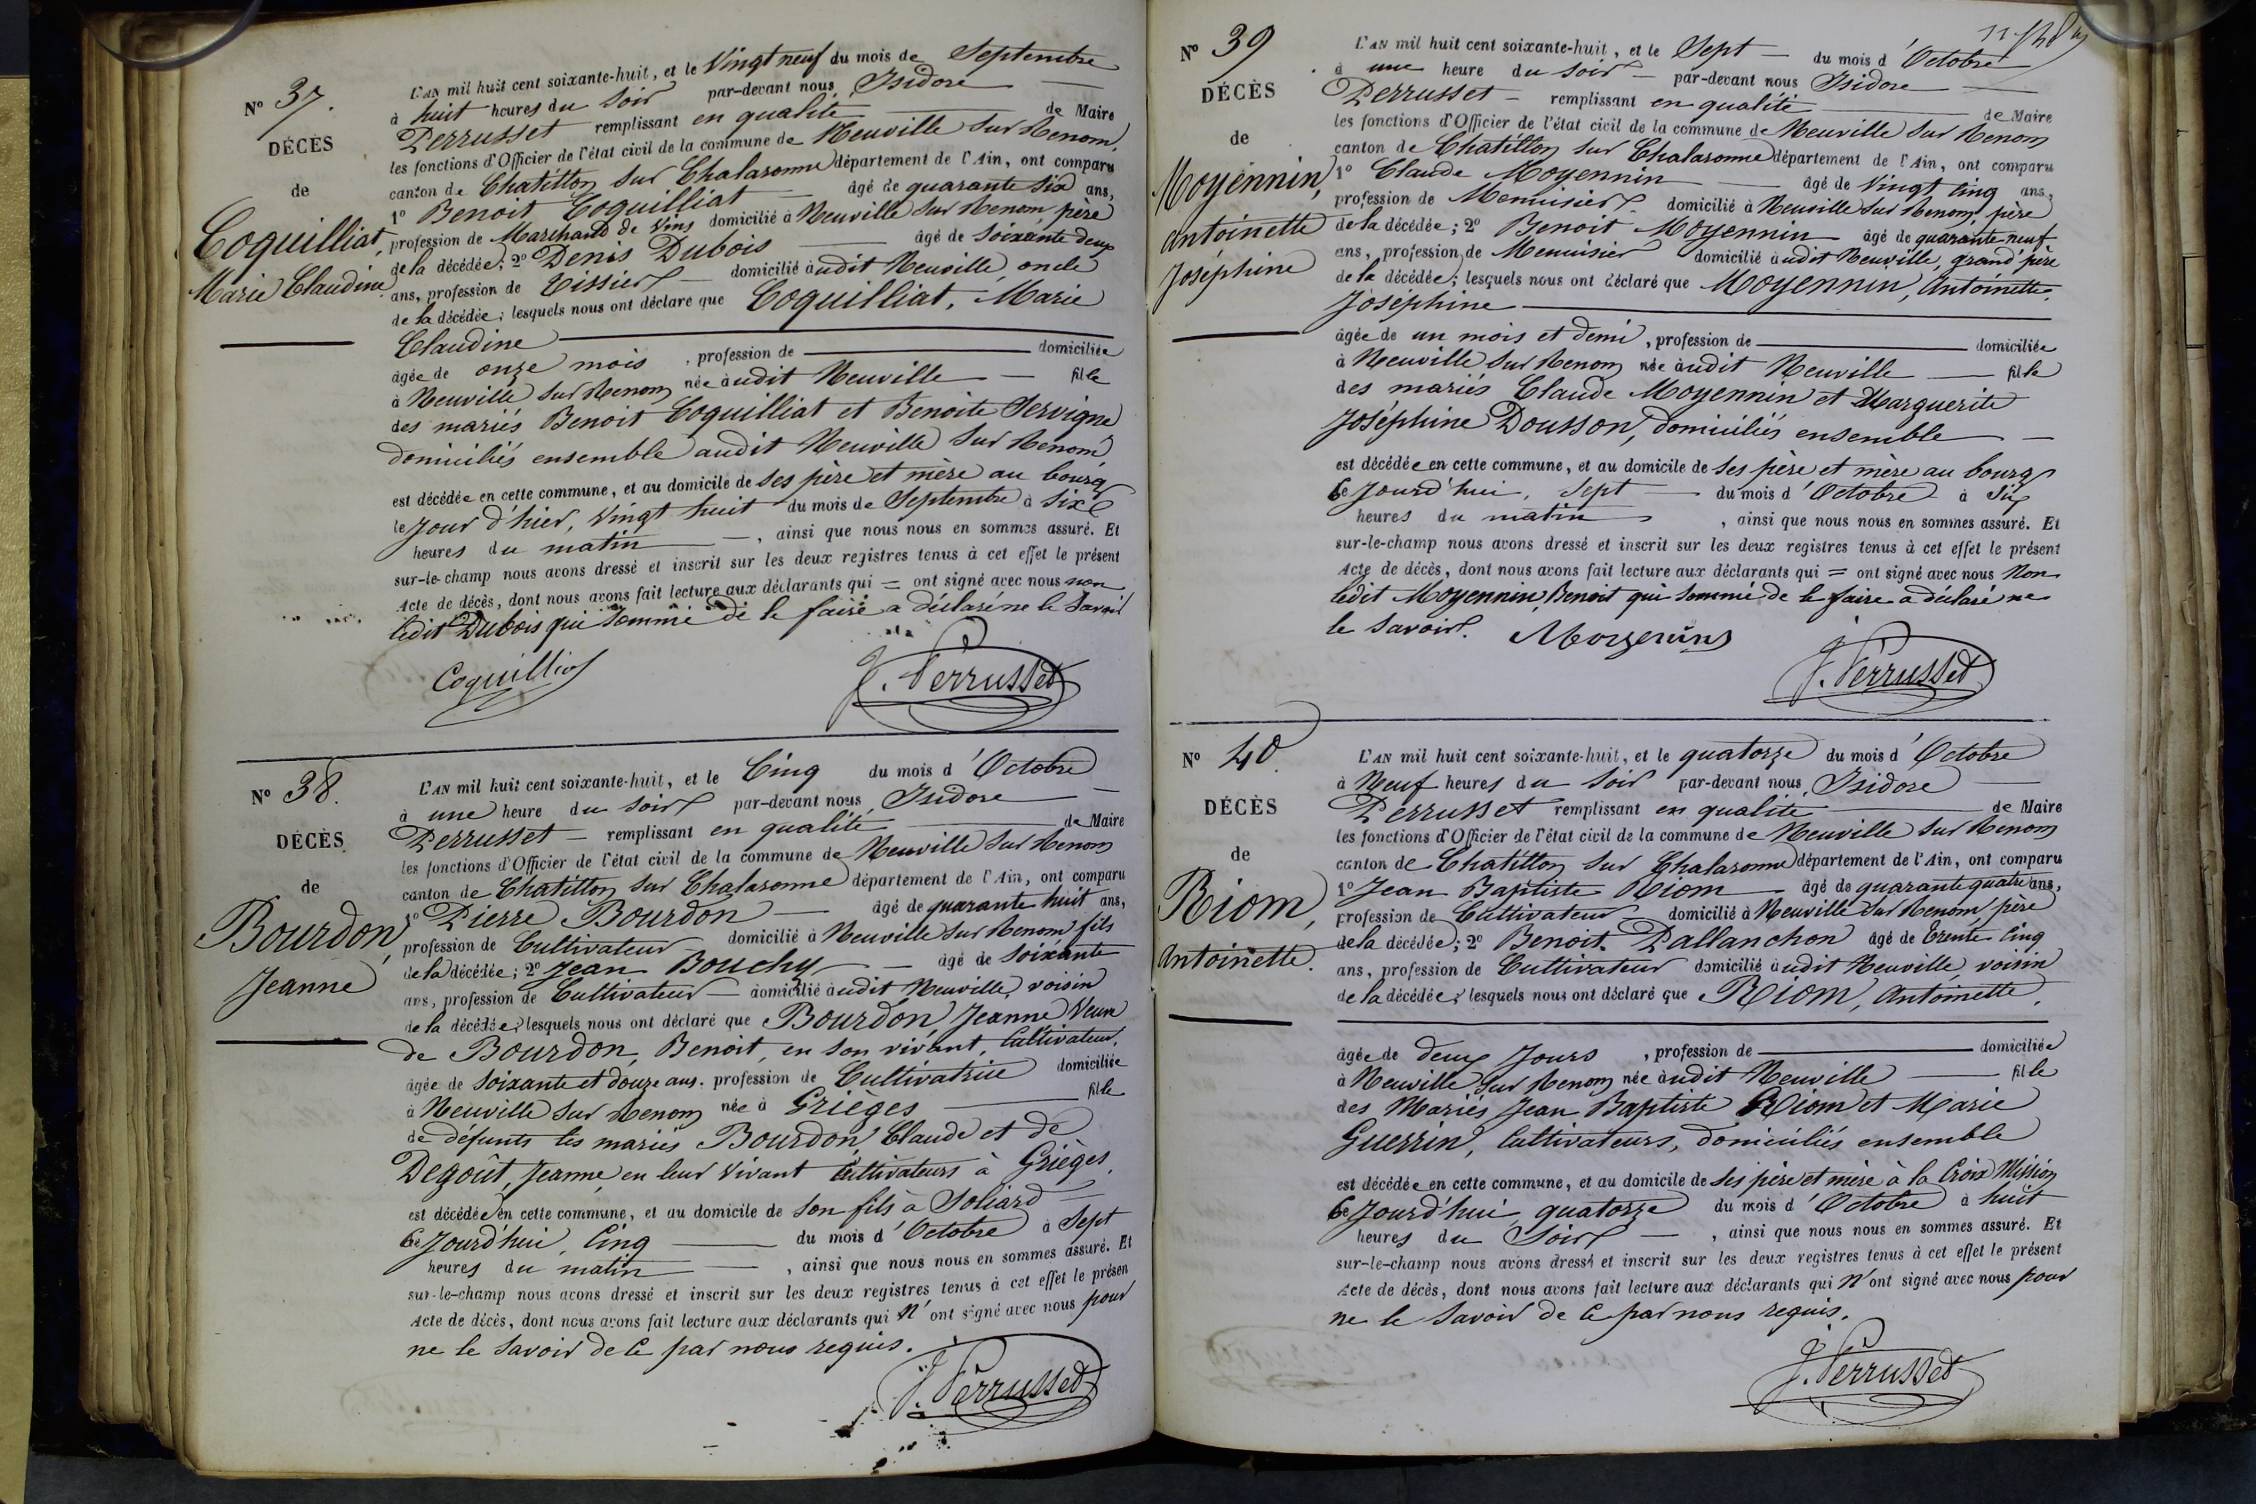 N° 37.
DÉCÈS
de
Coquilliat,
Marie Claudine
L'AN mil huit cent soixante-huit, et le Vingt neuf du mois de Septembre
à huit heures du soir par-devant nous Isidore
Perrusset remplissant en qualité de Maire
les fonctions d'Officier de l'état civil de la commune de Neuville sur Renom,
canton de Chatillon sur Chalaronne département de l'Ain, ont comparu
1° Benoit Coquilliat âgé de quarante six ans,
profession de Marchand de Vins domicilié à Neuville sur Renom, père
de la décédée; 2° Denis Dubois âgé de soixante deux
ans, profession de Tissier domicilié audit Neuville, oncle
de la décédée; lesquels nous ont déclaré que Coquilliat, Marie
Claudine
âgée de onze mois, profession de domiciliée
à Neuville sur Renom née audit Neuville fille
des mariés Benoit Coquilliat et Benoite Servigne
domiciliés ensemble audit Neuville sur Renom
est décédée en cette commune, et au domicile de ses père et mère au bourg
le jour d'hier, vingt huit du mois de Septembre à six
heures du matin, ainsi que nous nous en sommes assuré. Et
sur-le-champ nous avons dressé et inscrit sur les deux registres tenus à cet effet le présent
Acte de décès, dont nous avons fait lecture aux déclarants qui = ont signé avec nous non
ledit Dubois qui sommé de le faire a déclaré ne le savoir
Coquilliat
J. Perrusset
N° 38.
DÉCÈS
de
Bourdon,
Jeanne
L'AN mil huit cent soixante-huit, et le Cinq du mois d'Octobre
à une heure du soir par-devant nous Isidore
Perrusset remplissant en qualité de Maire
les fonctions d'Officier de l'état civil de la commune de Neuville sur Renom
canton de Chatillon sur Chalaronne département de l'Ain, ont comparu
1° Pierre Bourdon âgé de quarante huit ans,
profession de Cultivateur domicilié à Neuville sur Renom fils
de la décédée; 2° Jean Bouchy âgé de soixante
ans, profession de Cultivateur domicilié audit Neuville, voisin
de la décédée; lesquels nous ont déclaré que Bourdon, Jeanne Veuve
de Bourdon, Benoit, en son vivant, Cultivateur,
âgée de soixante et douze ans. profession de Cultivatrice domiciliée
à Neuville sur Renom née à Grièges fille
de défunts les mariés Bourdon, Claude et de
Degoût, Jeanne, en leur vivant Cultivateurs à Grièges,
est décédée en cette commune, et au domicile de son fils à Soliard
Ce Jourd'hui, Cinq du mois d'Octobre à Sept
heures du matin, ainsi que nous nous en sommes assuré. Et
sur-le-champ nous avons dressé et inscrit sur les deux registres tenus à cet effet le présen
Acte de décès, dont nous avons fait lecture aux déclarants qui n'ont signé avec nous pour
ne le savoir de ce par nous requis.
J. Perrusset
N° 39
DÉCÈS
de
Moyennin,
Antoinette
Joséphine
L'AN mil huit cent soixante-huit, et le Sept du mois d'Octobre
à une heure du soir par-devant nous Isidore
Perrusset remplissant en qualité de Maire
les fonctions d'Officier de l'état civil de la commune de Neuville sur Renom
canton de Chatillon sur Chalaronne département de l'Ain, ont comparu
1° Claude Moyennin âgé de vingt cinq ans,
profession de Menuisier domicilié à Neuville sur Renom, père
de la décédée; 2° Benoit Moyennin âgé de quarante neuf
ans, profession de Menuisier domicilié audit Neuville, grand père
de la décédée; lesquels nous ont déclaré que Moyennin, Antoinette,
Joséphine
âgée de un mois et demi, profession de domiciliée
à Neuville sur Renom née audit Neuville fille
des mariés Claude Moyennin et Marguerite
Joséphine Dousson, domiciliés ensemble
est décédée en cette commune, et au domicile de ses père et mère au bourg
Ce Jourd'hui, Sept du mois d'Octobre à Six
heures du matin, ainsi que nous nous en sommes assuré. Et
sur-le-champ nous avons dressé et inscrit sur les deux registres tenus à cet effet le présent
Acte de décès, dont nous avons fait lecture aux déclarants qui = ont signé avec nous Non
ledit Moyennin, Benoit qui sommé de le faire a déclaré ne
le savoir.
J. Perrusset
N° 40
DÉCÈS
de
Riom,
Antoinette.
L'AN mil huit cent soixante-huit, et le quatorze du mois d'Octobre
à Neuf heures du soir par-devant nous Isidore
Perrusset remplissant en qualité de Maire
les fonctions d'Officier de l'état civil de la commune de Neuville sur Renom
canton de Chatillon sur Chalaronne département de l'Ain, ont comparu
1° Jean Baptiste Riom âgé de quarante quatre ans,
profession de Cultivateur domicilié à Neuville sur Renom, père
de la décédée; 2° Benoit Pallanchon âgé de trente cinq
ans, profession de Cultivateur domicilié audit Neuville, voisin
de la décédée; lesquels nous ont déclaré que Riom, Antoinette,
âgée de deux Jours, profession de domiciliée
à Neuville sur Renom née audit Neuville fille
des Mariés Jean Baptiste Riom et Marie
Guerrin, Cultivateurs, domiciliés ensemble
est décédée en cette commune, et au domicile de ses père et mère à la Croix Mission
Ce Jourd'hui quatorze du mois d'Octobre à huit
heures du Soir, ainsi que nous nous en sommes assuré. Et
sur-le-champ nous avons dressé et inscrit sur les deux registres tenus à cet effet le présent
Acte de décès, dont nous avons fait lecture aux déclarants qui n'ont signé avec nous pour
ne le savoir de ce par nous requis.
J. Perrusset